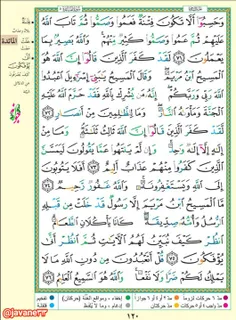 وَحَسِبُوٓا۟ أَلَّا تَكُونَ فِتْنَةٌ فَعَمُوا۟ وَصَمُّوا۟ ثُمَّ تَابَ ٱللَّهُ
عَلَيْهِمْ ثُمَّ عَمُوا۟ وَصَمُّوا۟ كَثِيرٌ مِّنْهُمْ وَٱللَّهُ بَصِيرٌۢ بِمَا
يَعْمَلُونَ ٧١ لَقَدْ كَفَرَ ٱلَّذِينَ قَالُوٓا۟ إِنَّ ٱللَّهَ
هُوَ ٱلْمَسِيحُ ٱبْنُ مَرْيَمَ وَقَالَ ٱلْمَسِيحُ يَٰبَنِىٓ إِسْرَٰٓءِيلَ ٱعْبُدُوا۟
ٱللَّهَ رَبِّى وَرَبَّكُمْ إِنَّهُۥ مَن يُشْرِكْ بِٱللَّهِ فَقَدْ حَرَّمَ ٱللَّهُ عَلَيْهِ
ٱلْجَنَّةَ وَمَأْوَىٰهُ ٱلنَّارُ وَمَا لِلظَّٰلِمِينَ مِنْ أَنصَارٍ ٧٢
لَّقَدْ كَفَرَ ٱلَّذِينَ قَالُوٓا۟ إِنَّ ٱللَّهَ ثَالِثُ ثَلَٰثَةٍ وَمَا مِنْ
إِلَٰهٍ إِلَّآ إِلَٰهٌ وَٰحِدٌ وَإِن لَّمْ يَنتَهُوا۟ عَمَّا يَقُولُونَ لَيَمَسَّنَّ
ٱلَّذِينَ كَفَرُوا۟ مِنْهُمْ عَذَابٌ أَلِيمٌ ٧٣ أَفَلَا يَتُوبُونَ
إِلَى ٱللَّهِ وَيَسْتَغْفِرُونَهُۥ وَٱللَّهُ غَفُورٌ رَّحِيمٌ ٧٤
مَّا ٱلْمَسِيحُ ٱبْنُ مَرْيَمَ إِلَّا رَسُولٌ قَدْ خَلَتْ مِن قَبْلِهِ
ٱلرُّسُلُ وَأُمُّهُۥ صِدِّيقَةٌ كَانَا يَأْكُلَانِ ٱلطَّعَامَ
ٱنظُرْ كَيْفَ نُبَيِّنُ لَهُمُ ٱلْءَايَٰتِ ثُمَّ ٱنظُرْ أَنَّىٰ
يُؤْفَكُونَ ٧٥ قُلْ أَتَعْبُدُونَ مِن دُونِ ٱللَّهِ مَا لَا
يَمْلِكُ لَكُمْ ضَرًّا وَلَا نَفْعًا وَٱللَّهُ هُوَ ٱلسَّمِيعُ ٱلْعَلِيمُ ٧٦
١٢٠